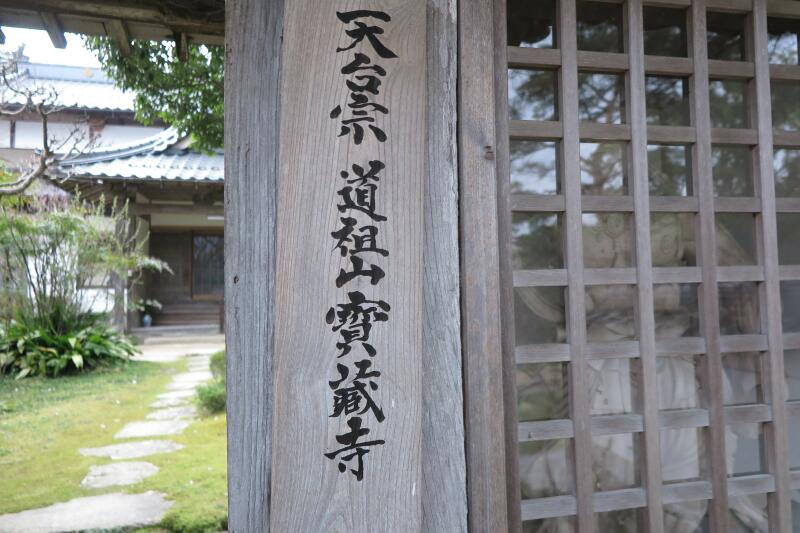 天台宗 道祖山寶蔵寺